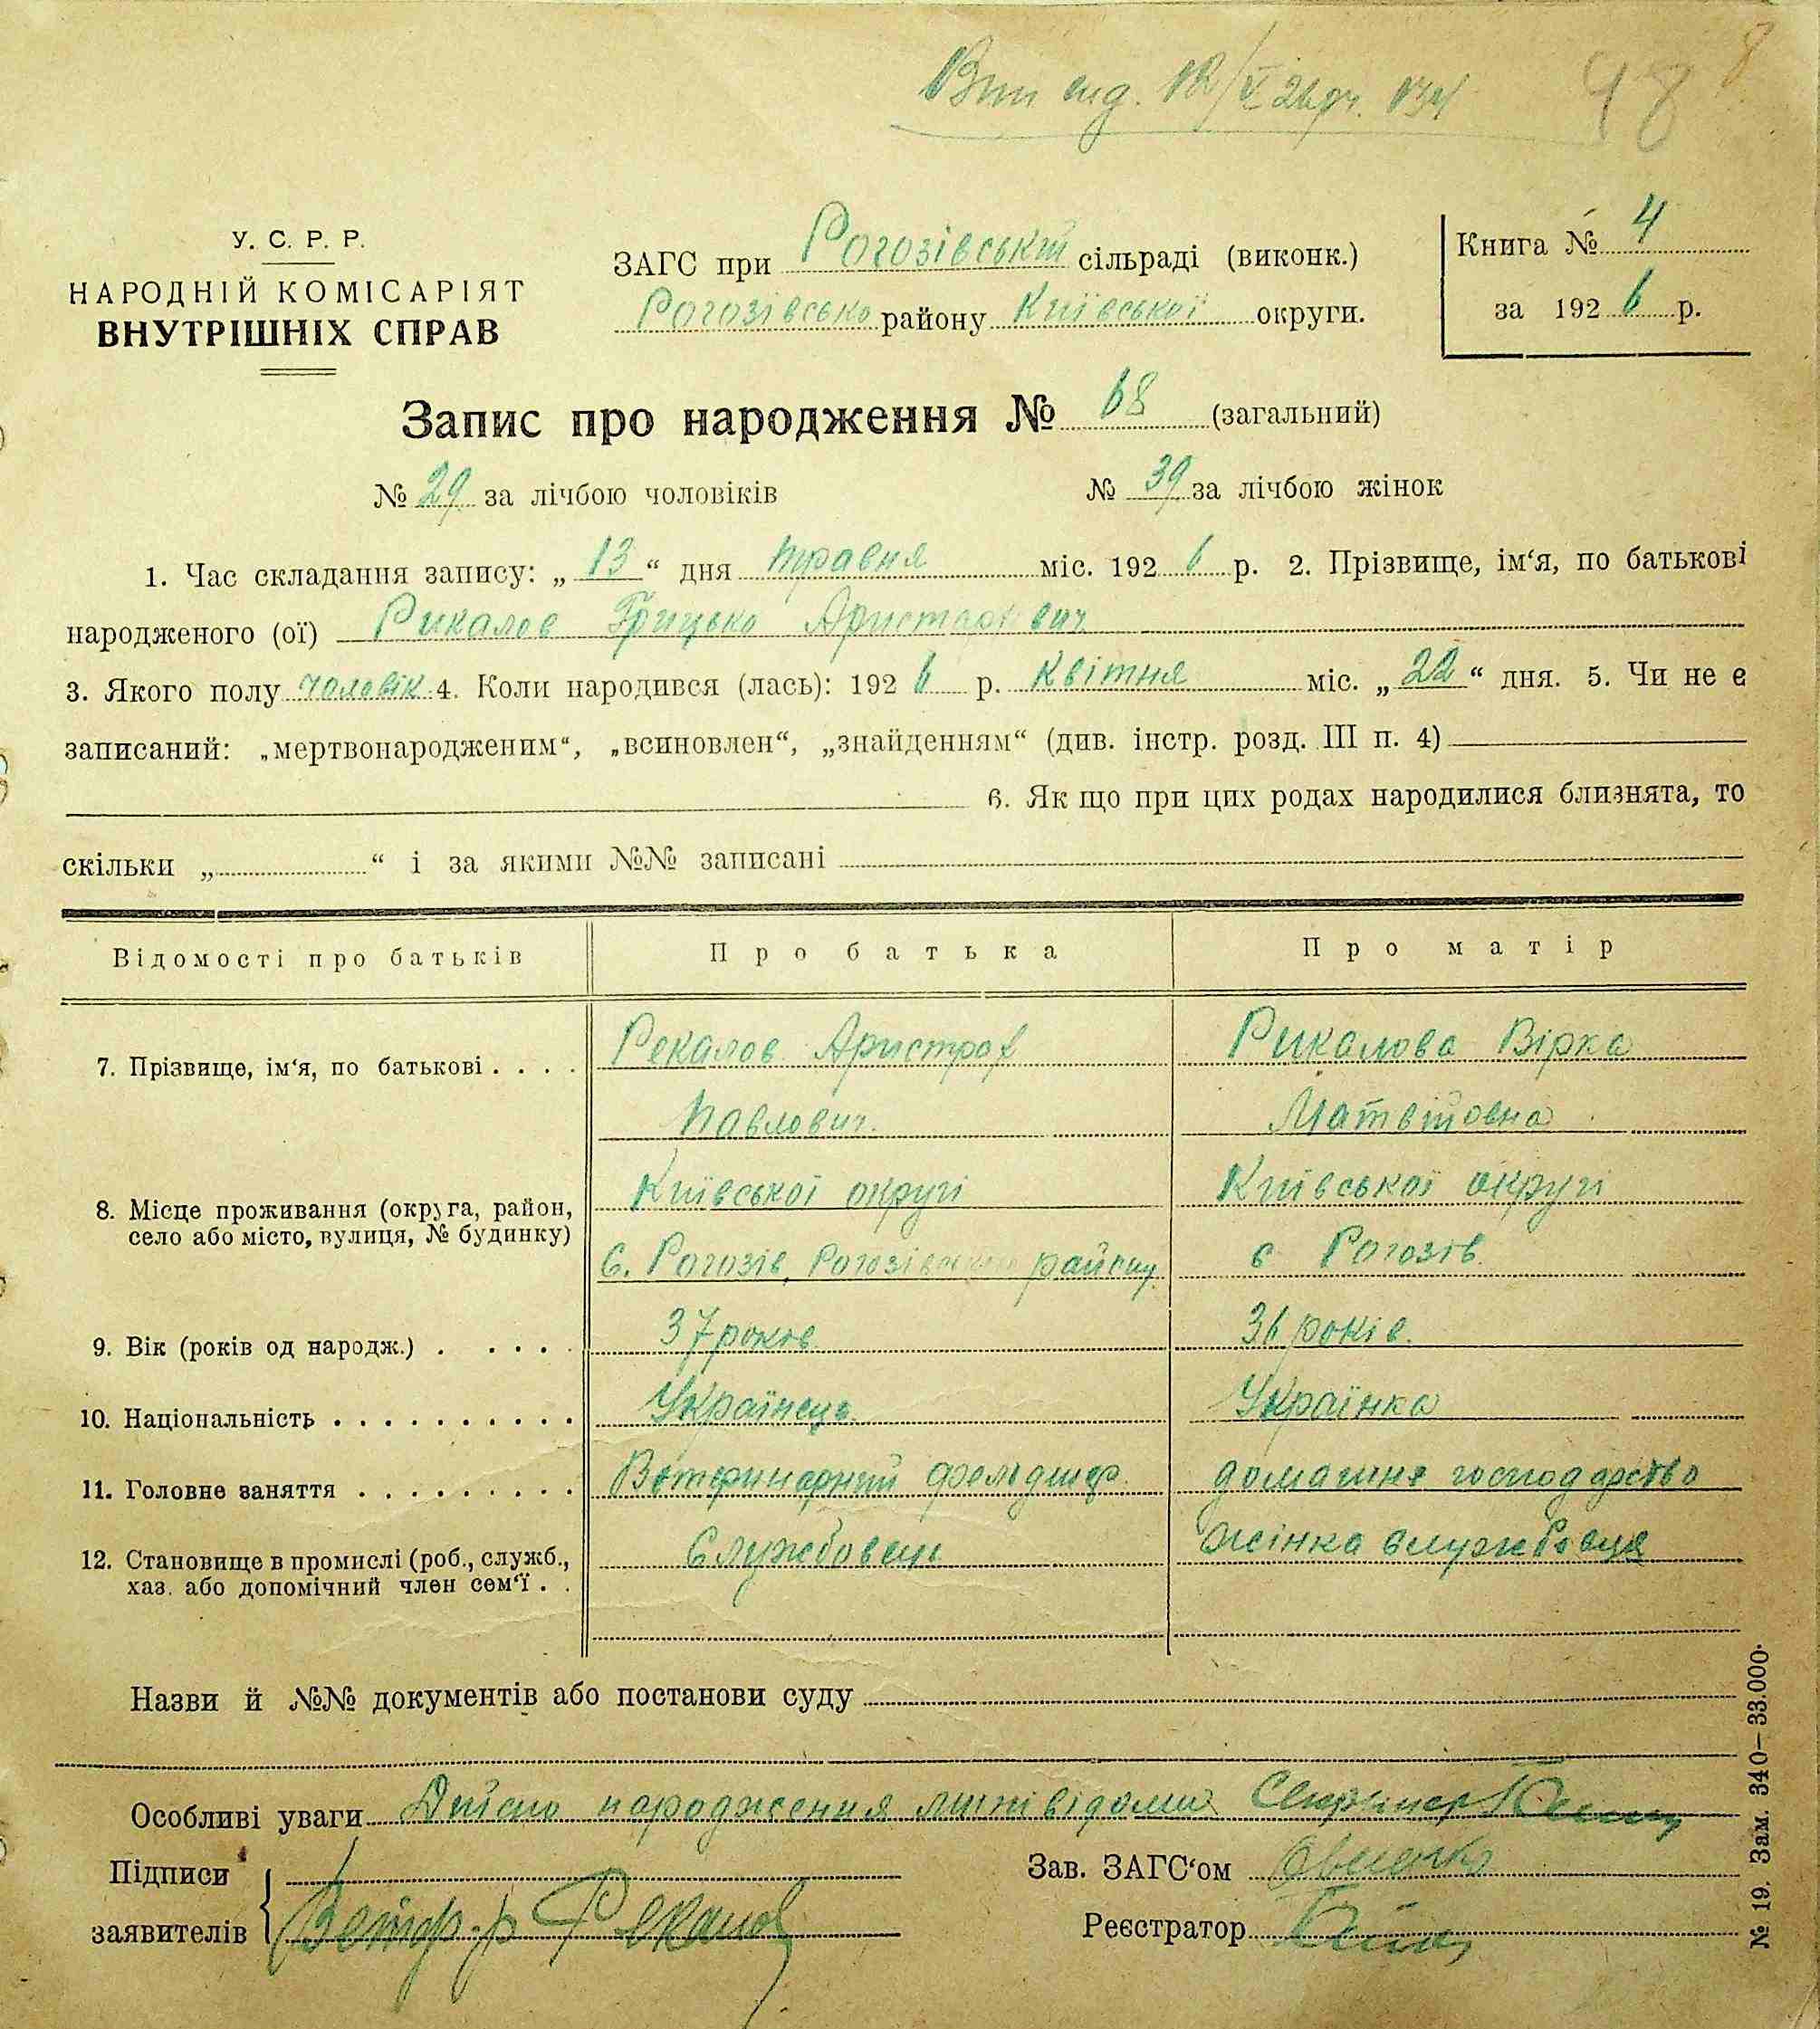 98 8
У. С. Р. Р.
НАРОДНІЙ КОМІСАРІЯТ
ВНУТРІШНІХ СПРАВ
ЗАГС при Рогозівській сільраді (виконк.)
Рогозівсько району Київської округи.
Книга № 4
за 1926 р.
Запис про народження № 68 (загальний)
№ 29 за лічбою чоловіків № 39 за лічбою жінок
1. Час складання запису: „13“ дня травня міс. 1926 р. 2. Прізвище, ім‘я, по батькові
народженого (ої) Рикалов Грицько Аристархович
3. Якого полу чоловік 4. Коли народився (лась): 1926 р. Квітня міс. „22“ дня. 5. Чи не є
записаний: „мертвонародженим“, „всиновлен“, „знайденням“ (див. інстр. розд. III п. 4)
6. Як що при цих родах народилися близнята, то
скільки „ “ і за якими №№ записані
Відомості про батьків Про батька Про матір
7. Прізвище, ім‘я, по батькові . . . . Рекалов Аристрах Рикалова Вірка
Павлович. Матвійовна
8. Місце проживання (округа, район, Київської округи Київської округи
село або місто, вулиця, № будинку) С. Рогозів, району. с Рогозів.
9. Вік (років од народж.) . . . . . 37 років. 36 років.
10. Національність . . . . . . . . . . Українець Українка
11. Головне заняття . . . . . . . . . Ветеринарний фельдшер. домашнє господарство
12. Становище в промислі (роб., служб., Службовець жінка службовця
хаз. або допомічний член сем‘ї . .
Назви й №№ документів або постанови суду
Особливі уваги народження мині відомий
Підписи
заявителів Рекалов
Зав. ЗАГС‘ом
Реєстратор
№ 19. Зам. 340–33.000.